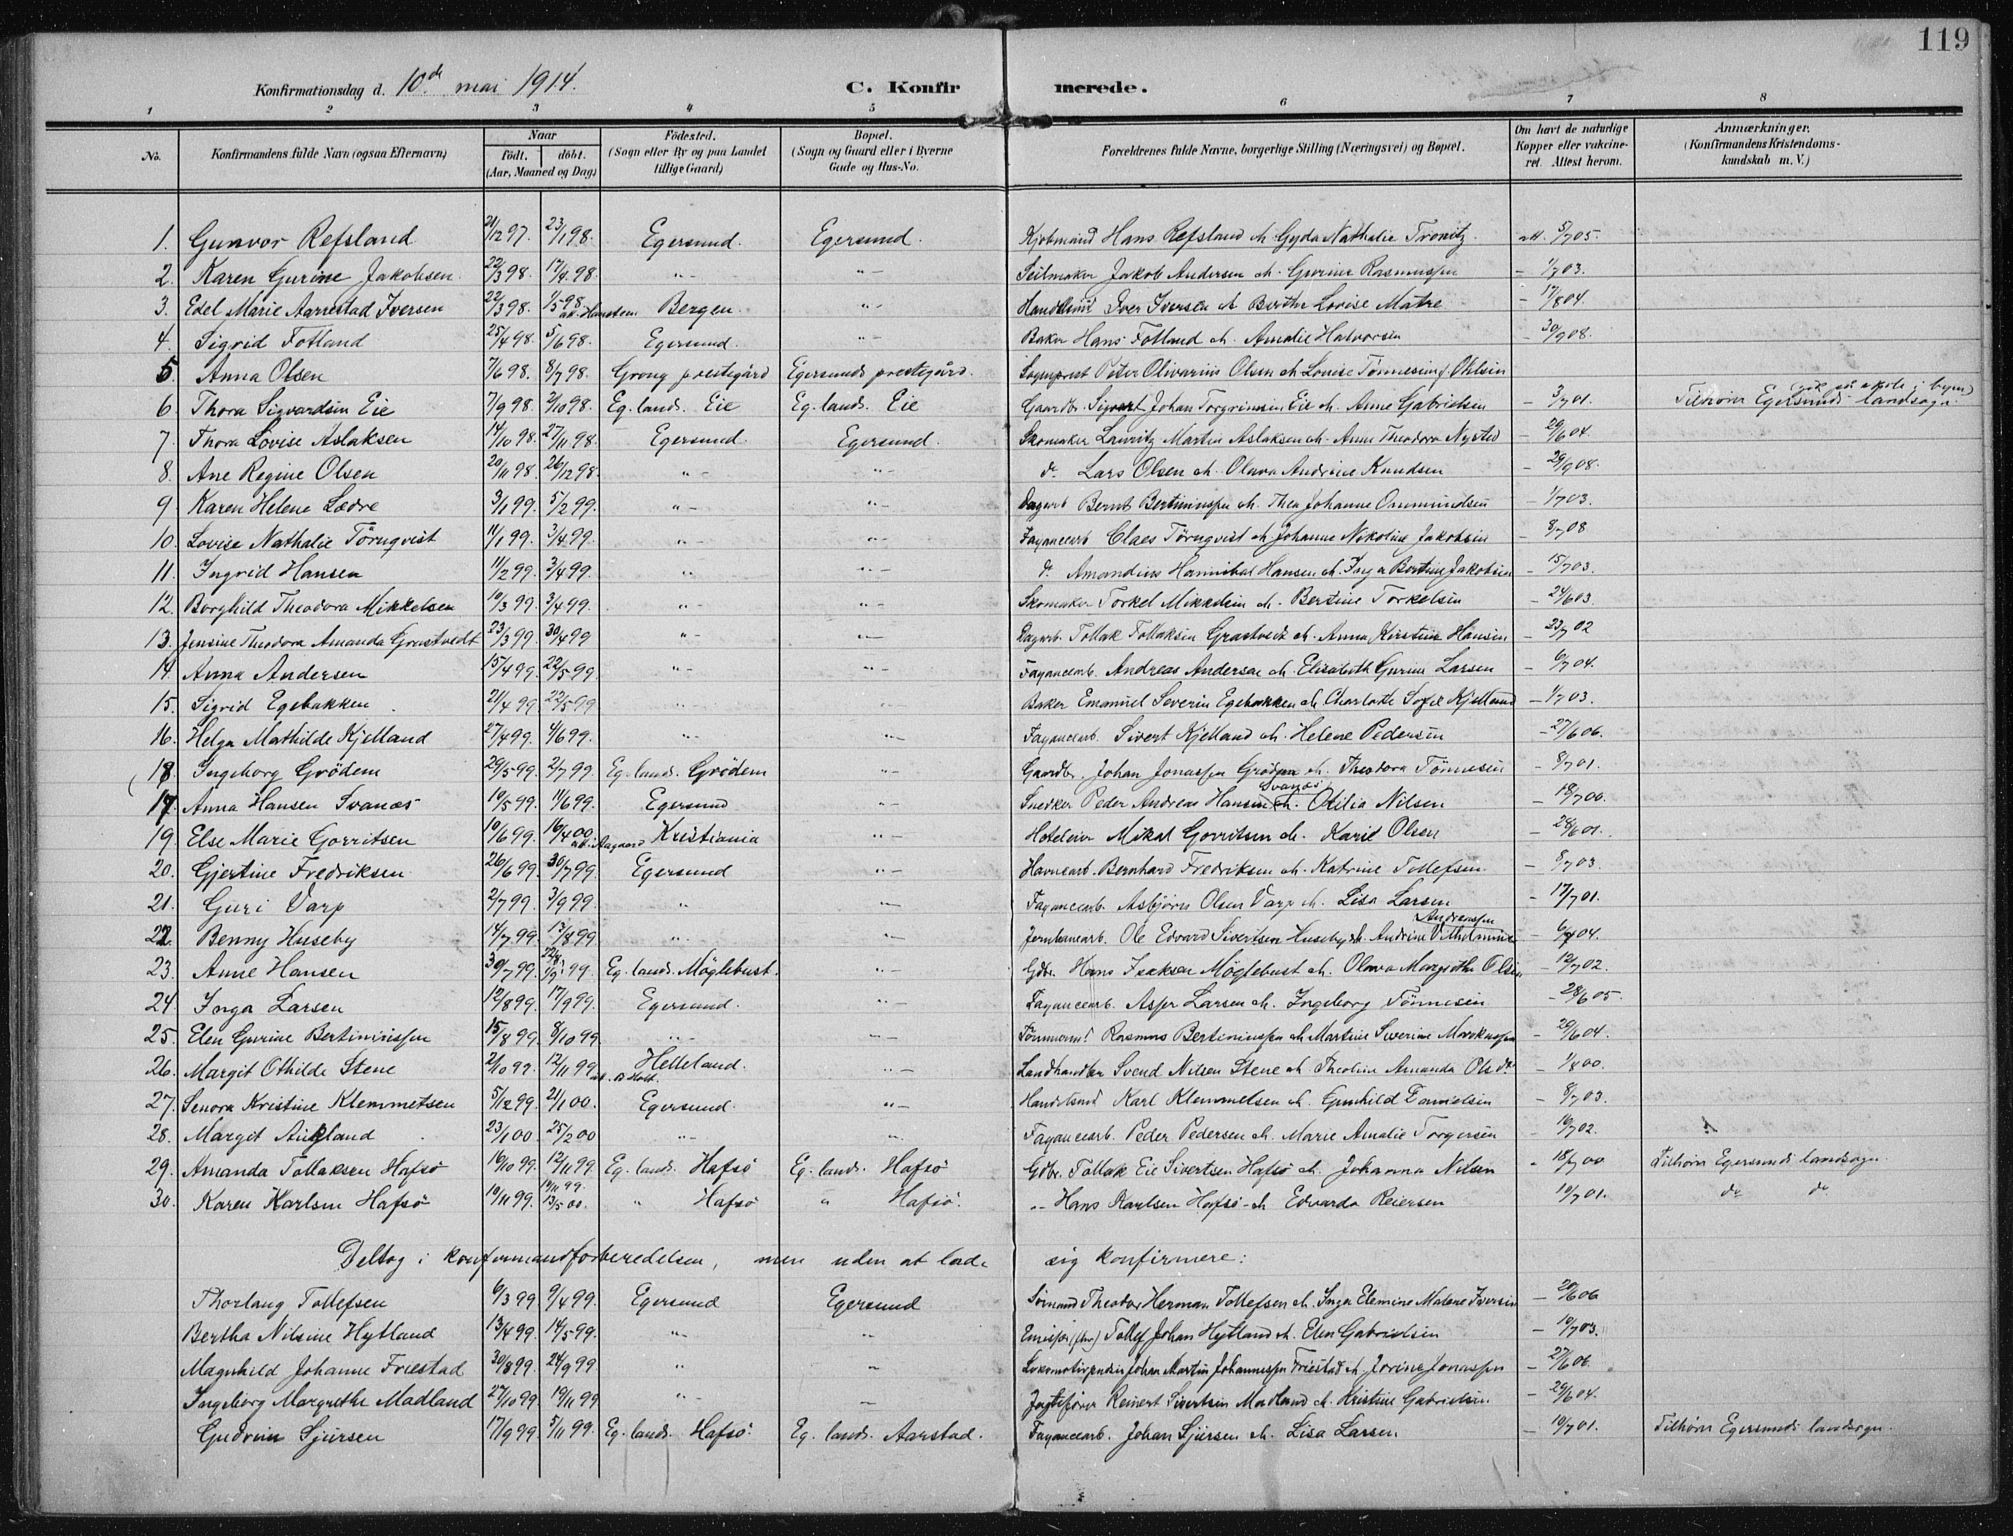 119
Konfirmationsdag d. 10de mai 1914. C. Konfirmerede.
1 2 3 4 5 6 7 8
No. Konfirmandens fulde Navn (ogsaa Efternavn) Naar födt. döbt. (Aar, Maaned og Dag) Födested. (Sogn eller By og paa Landet tillige Gaard) Bopæl. (Sogn og Gaard eller i Byerne Gade og Hus-No. Forældrenes fulde Navne, borgerlige Stilling (Næringsvei) og Bopæl. Om havt de naturlige Kopper eller vakcineret. Attest herom. Anmærkninger. (Konfirmandens Kristendomskundskab m. V.)
1. Gunvor Refsland 21/12 97. 23/1 98. Egersund. Egersund. Kjøbmand Hans Refsland & Gyda Nathalie Tronitz. att. 5/7 05.
2. Karen Gurine Jakobsen 22/3 98. 17/4 98. " - " - Seilmaker Jakob Andersen & Gurine Rasmussen - 1/7 03.
3. Edel Marie Aarrestad Iversen 22/3 98. 1/5 98. Bergen. " - Handelsmd Iver Iversen & Berthe Lovise Matre - 17/8 04.
4. Sigrid Fotland 25/4 98. 5/6 98. Egersund. " - Baker Hans Fotland & Amalie Halvorsen - 30/9 08.
5. Anna Olsen 7/6 98. 8/7 98. Grong prestegård Egersunds prestegård. Sogneprest Peter Olivarius Olsen & Louise Tønnesine f. Ohlsen
6. Thora Sigvardsen Eie 7/9 98. 2/10 98. Eg. lands. Eie Eg. lands. Eie Gaardbr. Sigvart Johan Torgrimsen Eie & Anne Gabrielsen - 3/7 01. Tilhører Egersunds landsogn (gik på skole i byen)
7. Thora Lovise Aslaksen 14/10 98. 27/11 98. Egersund. Egersund. Skomaker Lauritz Martin Aslaksen & Anne Theodora Nysted - 29/6 04.
8. Ane Regine Olsen 20/11 98. 26/12 98. " - " - do Lars Olsen & Olava Andrine Knudsen - 29/9 08.
9. Karen Helene Lædre 3/1 99. 5/2 99. " - " - Dagarb. Bernt Bertiniussen & Thea Johanne Osmundsen - 1/7 03.
10. Lovise Nathalie Törnqvist 11/1 99. 3/4 99. " - " - Fayancearb. Claes Törnqvist & Johanne Nikoline Jakobsen - 8/7 08
11. Ingrid Hansen 11/2 99. 3/4 99. " - " - do Amandius Hannibal Hansen & Inga Bertine Jakobsen - 15/7 03.
12. Borghild Theodora Mikkelsen 10/3 99. 3/4 99. " - " - Skomaker Torkel Mikkelsen & Bertine Torkelsen - 24/6 03.
13. Jensine Theodora Amanda Grastvedt 23/3 99. 30/4 99 " - " - Dagarb. Tollak Tollaksen Grastvedt & Anna Kirstine Hansen - 23/7 02
14. Anna Andersen 15/4 99. 22/5 99. " - " - Fayancearb. Andreas Andersen & Elisabeth Gurine Larsen - 6/7 04.
15. Sigrid Egebakken 21/4 99. 22/5 99 " - " - Baker Emanuel Severin Egebakken & Charlotte Sofie Kjelland - 1/7 03.
16. Helga Mathilde Kjelland 27/4 99. 4/6 99. " - " - Fayancearb. Sivert Kjelland & Helene Pedersen - 27/6 06.
(18. Ingeborg Grödem 29/5 99. 2/7 99. Eg. lands. Grödem " - Gaardbr. Johan Jonassen Grödem & Theodora Tönnesen - 8/7 01.
17. Anna Hansen Svanæs 10/5 99. 11/6 99. Egersund " - Snedker Peder Andreas Hansen Svanæs & Otilia Nilsen - 18/7 00.
19. Else Marie Gorritsen 10/6 99. 16/4 00. Kristiania " - Hoteleier Mikal Gorritsen & Karie Olsen - 28/6 01.
20. Gjertine Fredriksen 26/6 99. 30/7 99. Egersund " - Havnearb. Bernhard Fredriksen & Katrine Tollefsen. - 8/7 03.
21. Guri Varp 2/7 99. 3/9 99. " - " - Fayancearb. Asbjörn Olsen Varp & Lisa Larsen - 17/7 01.
22. Benny Huseby 14/7 99. 13/8 99. " - " - Jernbanearb. Ole Edvard Sivertsen Huseby & Andrine Vilhelmine Andreassen - 6/7 04.
23. Anne Hansen 30/7 99. Eg. lands. Möglebust. " - Gdbr. Hans Isaksen Möglebust & Olava Margrethe Olsen - 12/7 02.
24. Inga Larsen 12/8 99. 17/9 99. Egersund. " - Fayancearb. Asser Larsen & Ingeborg Tönnesen - 28/6 05.
25. Elen Gurine Bertiniussen 15/8 99. 8/10 99. " - " - Tömmerm. Rasmus Bertiniussen & Martine Severine Markussen - 29/6 04.
26. Margit Othilde Stene 2/10 99. 12/11 99 Helleland. " - Landhandler Svend Nilsen Stene & Theoline Amanda Olsdr. - 1/8 00.
27. Senora Kristine Klemmetsen 5/12 99. 21/1 00. Egersund. " - Handelsmd Karl Klemmetsen & Gunhild Danielsen - 8/7 03.
28. Margit Aurland 23/1 00. 25/2 00 " - " - Fayancearb. Peder Pedersen & Marie Amalie Torgersen - 16/7 02.
29. Amanda Tollaksen Hafsö 16/10 99. 12/11 99. Eg. lands. Hafsö Eg. lands. Hafsö Gdbr. Tollak Eie Sivertsen Hafsö & Johanna Nilsen " 18/7 00 Tilhører Egersunds landsogn.
30. Karen Karlsen Hafsö 10/11 99. 19/11 99. 13/5 00. " Hafsö " Hafsö. " - Hans Karlsen Hafsö & Edvarda Reiersen 10/7 01. do do
Deltog i konfirmandforberedelsen, men uden at lade sig konfirmere:
Thorlaug Tollefsen 6/3 99 9/4 99. Egersund Egersund Sömand Theodor Herman Tollefsen & Inga Elemine Malene Iversen - 20/6 06
Bertha Nilsine Hytland 13/4 99. 14/5 99. " - " Tollef Johan Hytland & Elen Gabrielsen - 10/7 03.
Magnhild Johanne Friestad 30/8 99. 24/9 99 " - " Lokomotivpudser Johan Martin Johannessen Friestad & Jorine Jonassen - 27/6 06.
Ingeborg Margrethe Madland 27/10 99. 19/11 99. " - " Jagtefører Reinert Sivertsen Madland & Kristine Gabrielsen. - 29/6 04.
Gudrun Sjursen 17/9 99. 5/11 99. Eg. lands. Hafsö. Eg. lands. Aarstad. Fayancearb. Johan Sjursen & Lisa Larsen - 10/7 01. Tilhører Egersunds landsogn.